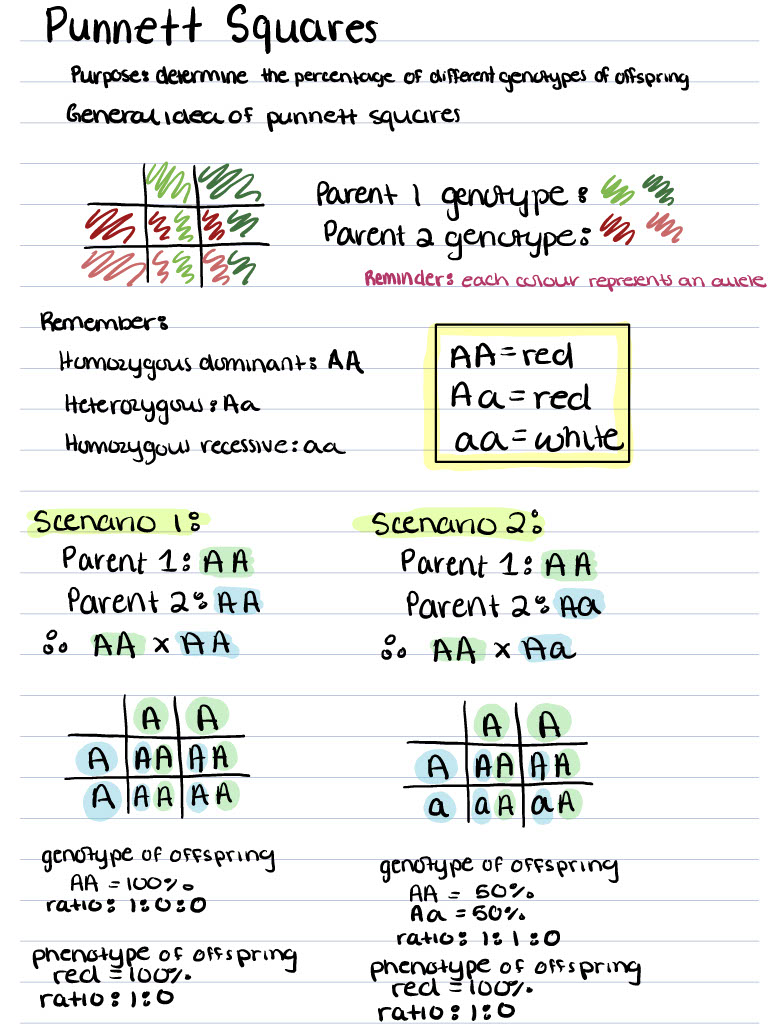 Punnett Squares
Purpose: determine the percentage of different genotypes of offspring
General idea of punnett squares
Parent 1 genotype:
Parent 2 genotype:
Reminder: each colour represents an allele
Remember:
Homozygous dominant: AA
Heterozygous: Aa
Homozygous recessive: aa
AA = red
Aa = red
aa = white
Scenario 1:
Parent 1: AA
Parent 2: AA
∴ AA x AA
A A
A AA AA
A AA AA
genotype of offspring
AA = 100%
ratio: 1:0:0
phenotype of offspring
red = 100%
ratio: 1:0
Scenario 2:
Parent 1: AA
Parent 2: Aa
∴ AA x Aa
A A
A AA AA
a aA aA
genotype of offspring
AA = 50%
Aa = 50%
ratio: 1:1:0
phenotype of offspring
red = 100%
ratio: 1:0